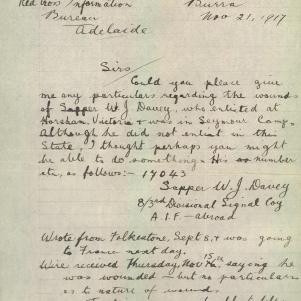 Red Cross Information
Burra
Bureau
Nov 21, 1917
Adelaide
Sirs
Could you please give
me any particulars regarding the wounds
of Sapper W J Davey, who enlisted at
Horsham, Victoria & was in Seymour Camp.
Although he did not enlist in this
State, I thought perhaps you might
be able to do something. His number
etc, as follows:- 17043
Sapper W. J. Davey
8/3rd Divisional Signal Coy
A.I.F. - abroad
Wrote from Folkestone, Sept 8, & was going
to France next day.
Wire received Thursday, Nov 15th, saying he
was wounded - but no particulars
as to nature of wound.